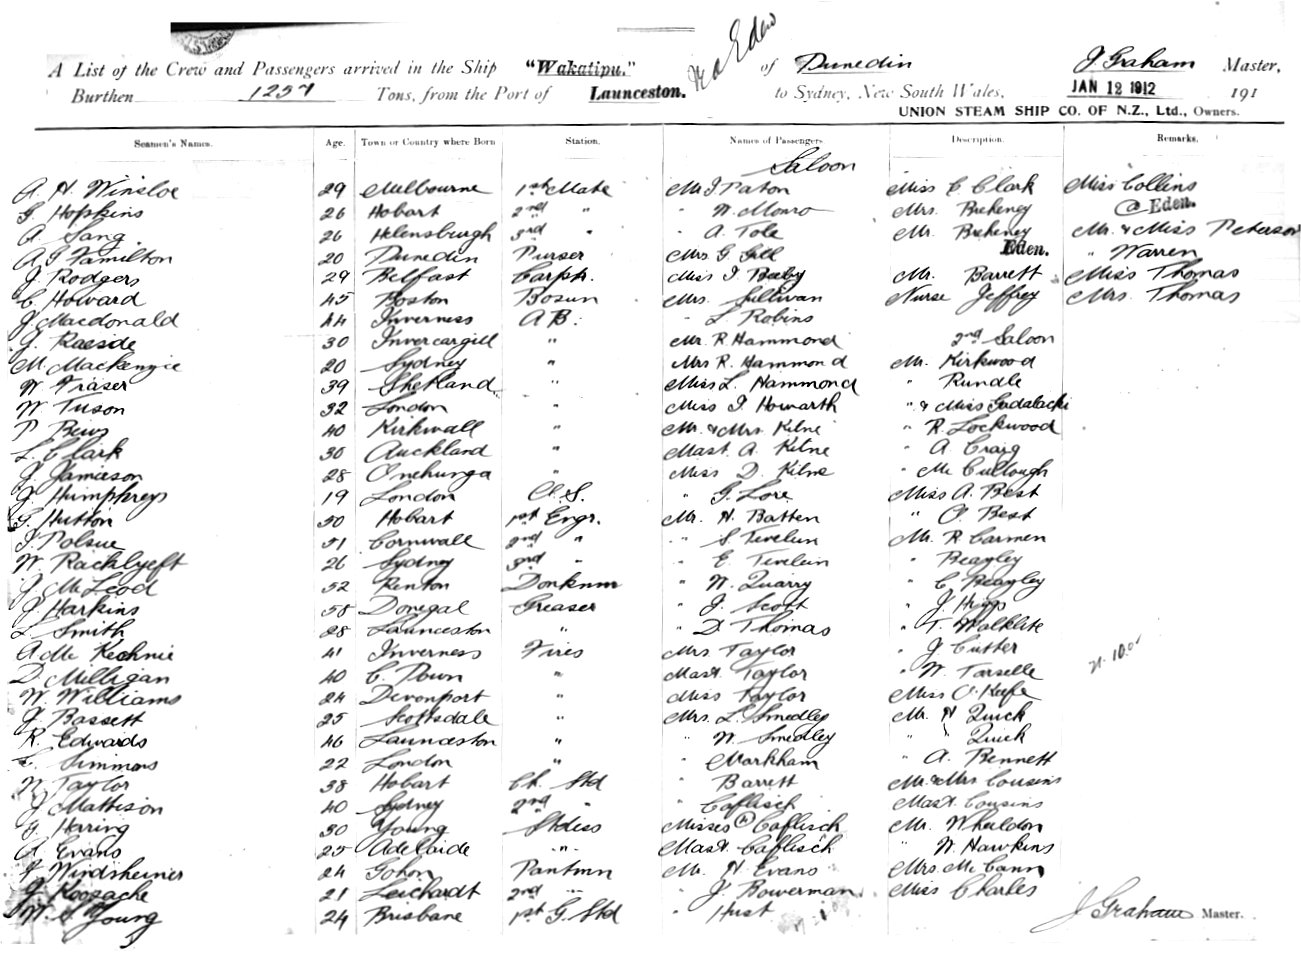 A List of the Crew and Passengers arrived in the Ship "Wakatipu." via Eden of Dunedin J. Graham Master,
Burthen 1257 Tons, from the Port of Launceston. to Sydney, New South Wales, JAN 12 1912 191
UNION STEAM SHIP CO. OF N.Z., Ltd., Owners.
Seamen's Names. Age. Town or Country where Born Station. Names of Passengers Description. Remarks.
Saloon
A. H. Winsloe 29 Melbourne 1st Mate Mr J Paton Miss E Clark Miss Collins
G. Hopkins 26 Hobart 2nd " " W. Monro Mrs. Breheney @ Eden.
A. Sang 26 Helensburgh 3rd " " A. Tole Mr. Breheney Mr. & Miss Peterson
A J Hamilton 20 Dunedin Purser Mrs G. Gill Eden. " Warren
J. Rodgers 29 Belfast Carptr. Miss I Beeby Mr. Barrett Miss Thomas
C. Howard 45 Boston Bosun Mrs. Sullivan Nurse Jeffrey Mrs. Thomas
J. Macdonald 44 Inverness A B. " L Robins
J. Raeside 30 Invercargill " Mr. R Hammond 2nd Saloon
M. Mackenzie 20 Sydney " Mrs R. Hammond Mr. Kirkwood
W Fraser 39 Shetland " Miss L. Hammond " Rundle
W. Tuson 32 London " Miss I. Howarth " & Miss Gadalacki
P Bews 40 Kirkwall " Mr. & Mrs. Kilne " R. Lockwood
L. Clark 30 Auckland " Mast. A. Kilne " A. Craig
J. Jamieson 28 Onehunga " Miss D. Kilne " Mc Cullough
J. Humphreys 19 London O. S. " G. Lore Miss A. Best
G. Hutton 50 Hobart 1st Engr. Mr. H. Batten " O. Best
J. Polsue 51 Cornwall 2nd " " S Mr. R Carmen
W. Racklyeft 26 Sydney 3rd " " E. " Beagley
J. Mc Leod 52 Renton Donkmn " W. Quarry " C. Beagley
J. Harkins 58 Donegal Greaser " J. Scott " J. Higgs
L. Smith 28 Launceston " " D. Thomas " T. Walklate
A Mc Kechnie 41 Inverness Fires Mrs. Taylor " J Cutter
D. Milligan 40 C. Town " Mast. Taylor " W. Tarselle
W. Williams 24 Devonport " Miss Taylor Miss O. Keefe
J. Bassett 25 Scottsdale " Mrs. L. Smedley Mr. H Quick
R. Edwards 46 Launceston " " W Smedley " " Quick
Simmons 22 London " " Markham " A. Bennett
W Taylor 38 Hobart Ch. Std " Barrett Mr. & Mrs Cousins
J Mattison 40 Sydney 2nd " " Caflisch Mast. Cousins
Harring 30 Young Stdess Misses (2) Caflisch Mr. Wheildon
A Evans 25 Adelaide " Mast. Caflisch " W. Hawkins
J Windsheimer 24 Pantmn Mr. H Evans Mrs. Mc Cann
J Koosache 21 Leichardt 2nd " " J. Bowerman Miss Charles
W. C Young 24 Brisbane 1st G. Std " Hust J Graham Master.